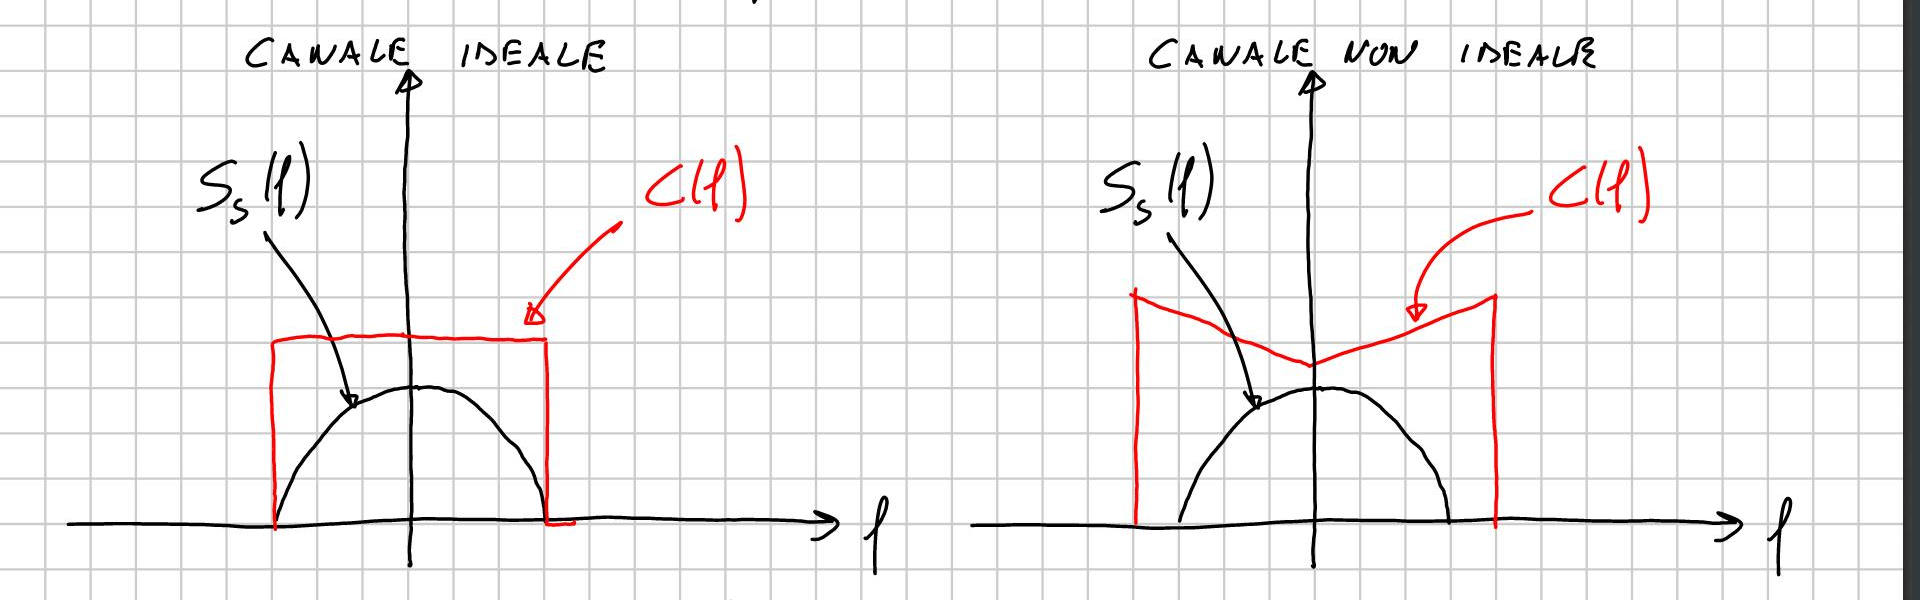 CANALE IDEALE
S_s(f)
C(f)
f
CANALE NON IDEALE
S_s(f)
C(f)
f